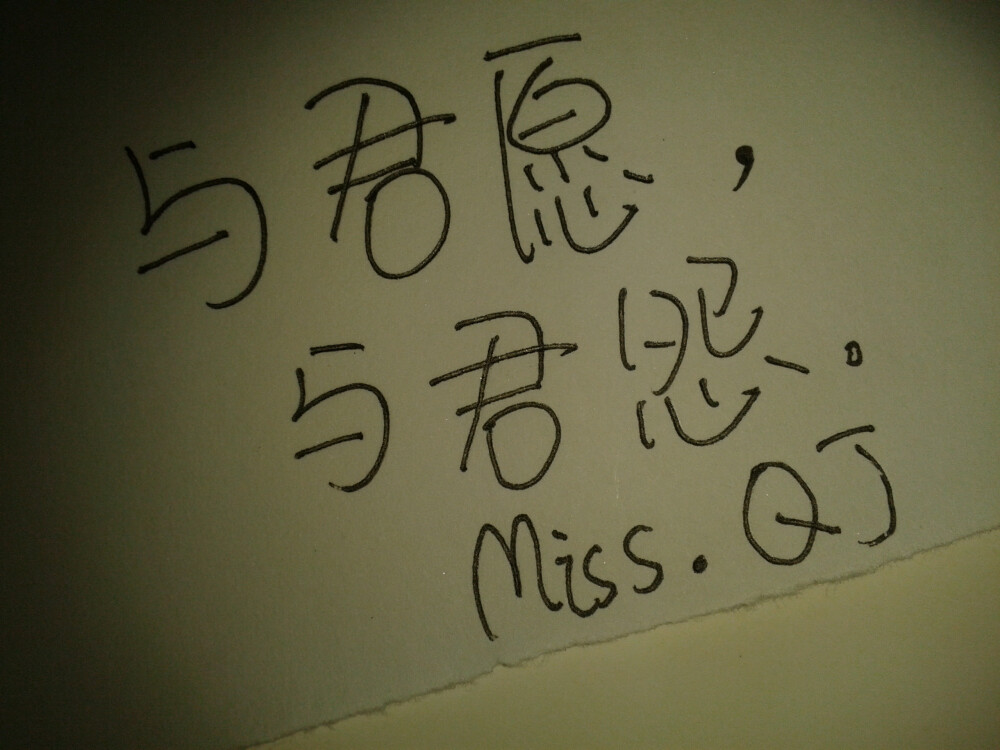 与君愿，
与君怨。
Miss. QJ